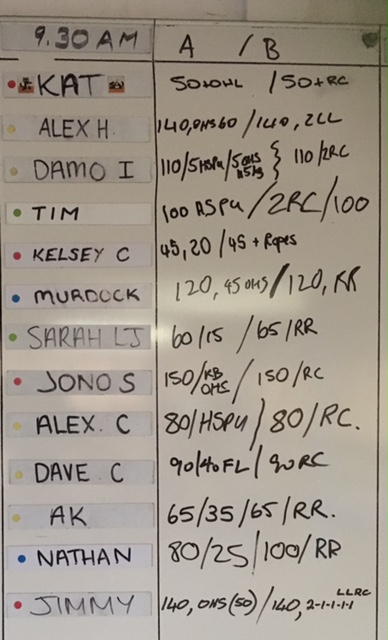 9.30 AM A / B
KAT 50+OHL / 50+RC
ALEX H. 140,OHS60 / 140, 2LL
DAMO I 110/5HSPU/5OHS } 110/2RC
TIM 100 HSPU / 2RC / 100
KELSEY C 45,20 / 45 + Ropes
MURDOCK 120, 45 OHS / 120, RR
SARAH LJ 60/15 / 65/RR
JONO S 150/KB OHS / 150/RC
ALEX. C 80/HSPU / 80/RC.
DAVE C 90/40FL / 90RC
AK 65/35/65/RR.
NATHAN 80/25/100/RR
JIMMY 140, OHS(50) / 140, 2-1-1-1-1 LLRC